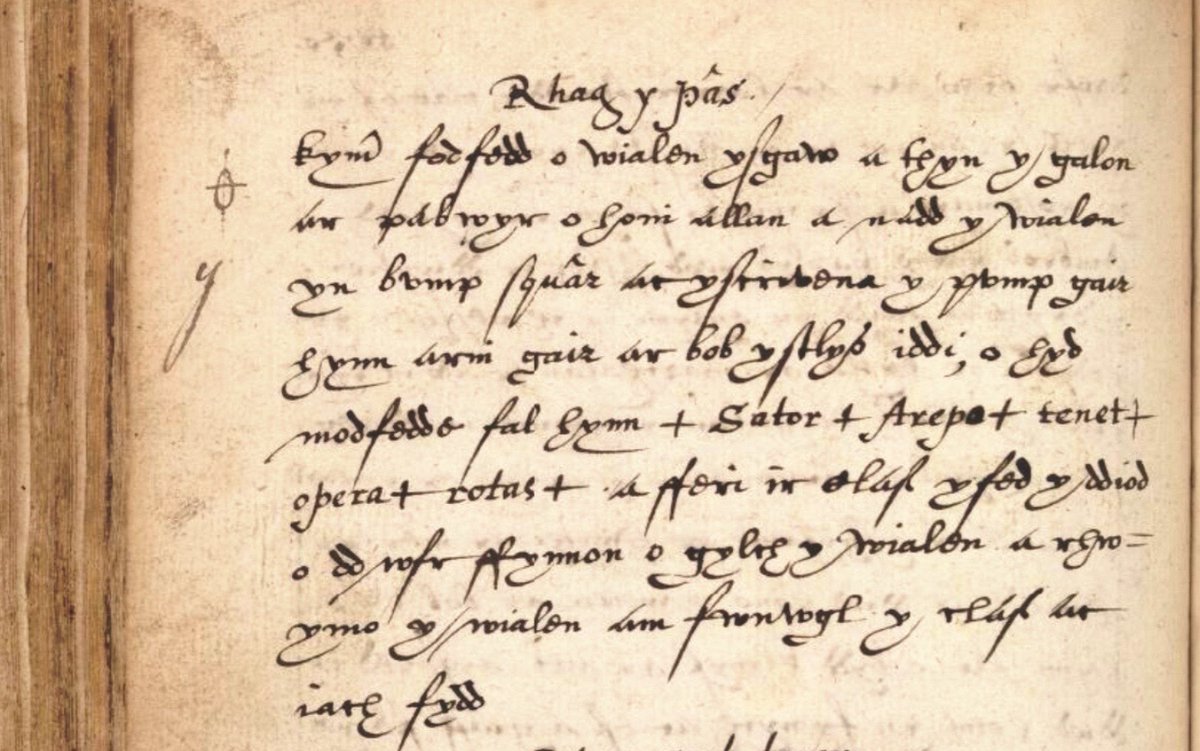 Rhag y pâs
kymˀ fodfedd o wialen ysgaw a thyn y galon
ar pabwyr o honi allan a nâdd y wialen
yn bvmp squâr ac yscrivena y pvmp gair
hynn arni gair ar bob ystlys iddi, o hyd
modfedde fal hynn + Sator + Arepo + tenet +
opera + rotas + a fferi ir claf yfed y ddiod
o ddwfr ffynnon o gylch y wialen a rhw=
ymo y wialen am fwnwgl y claf ac
iach fydd